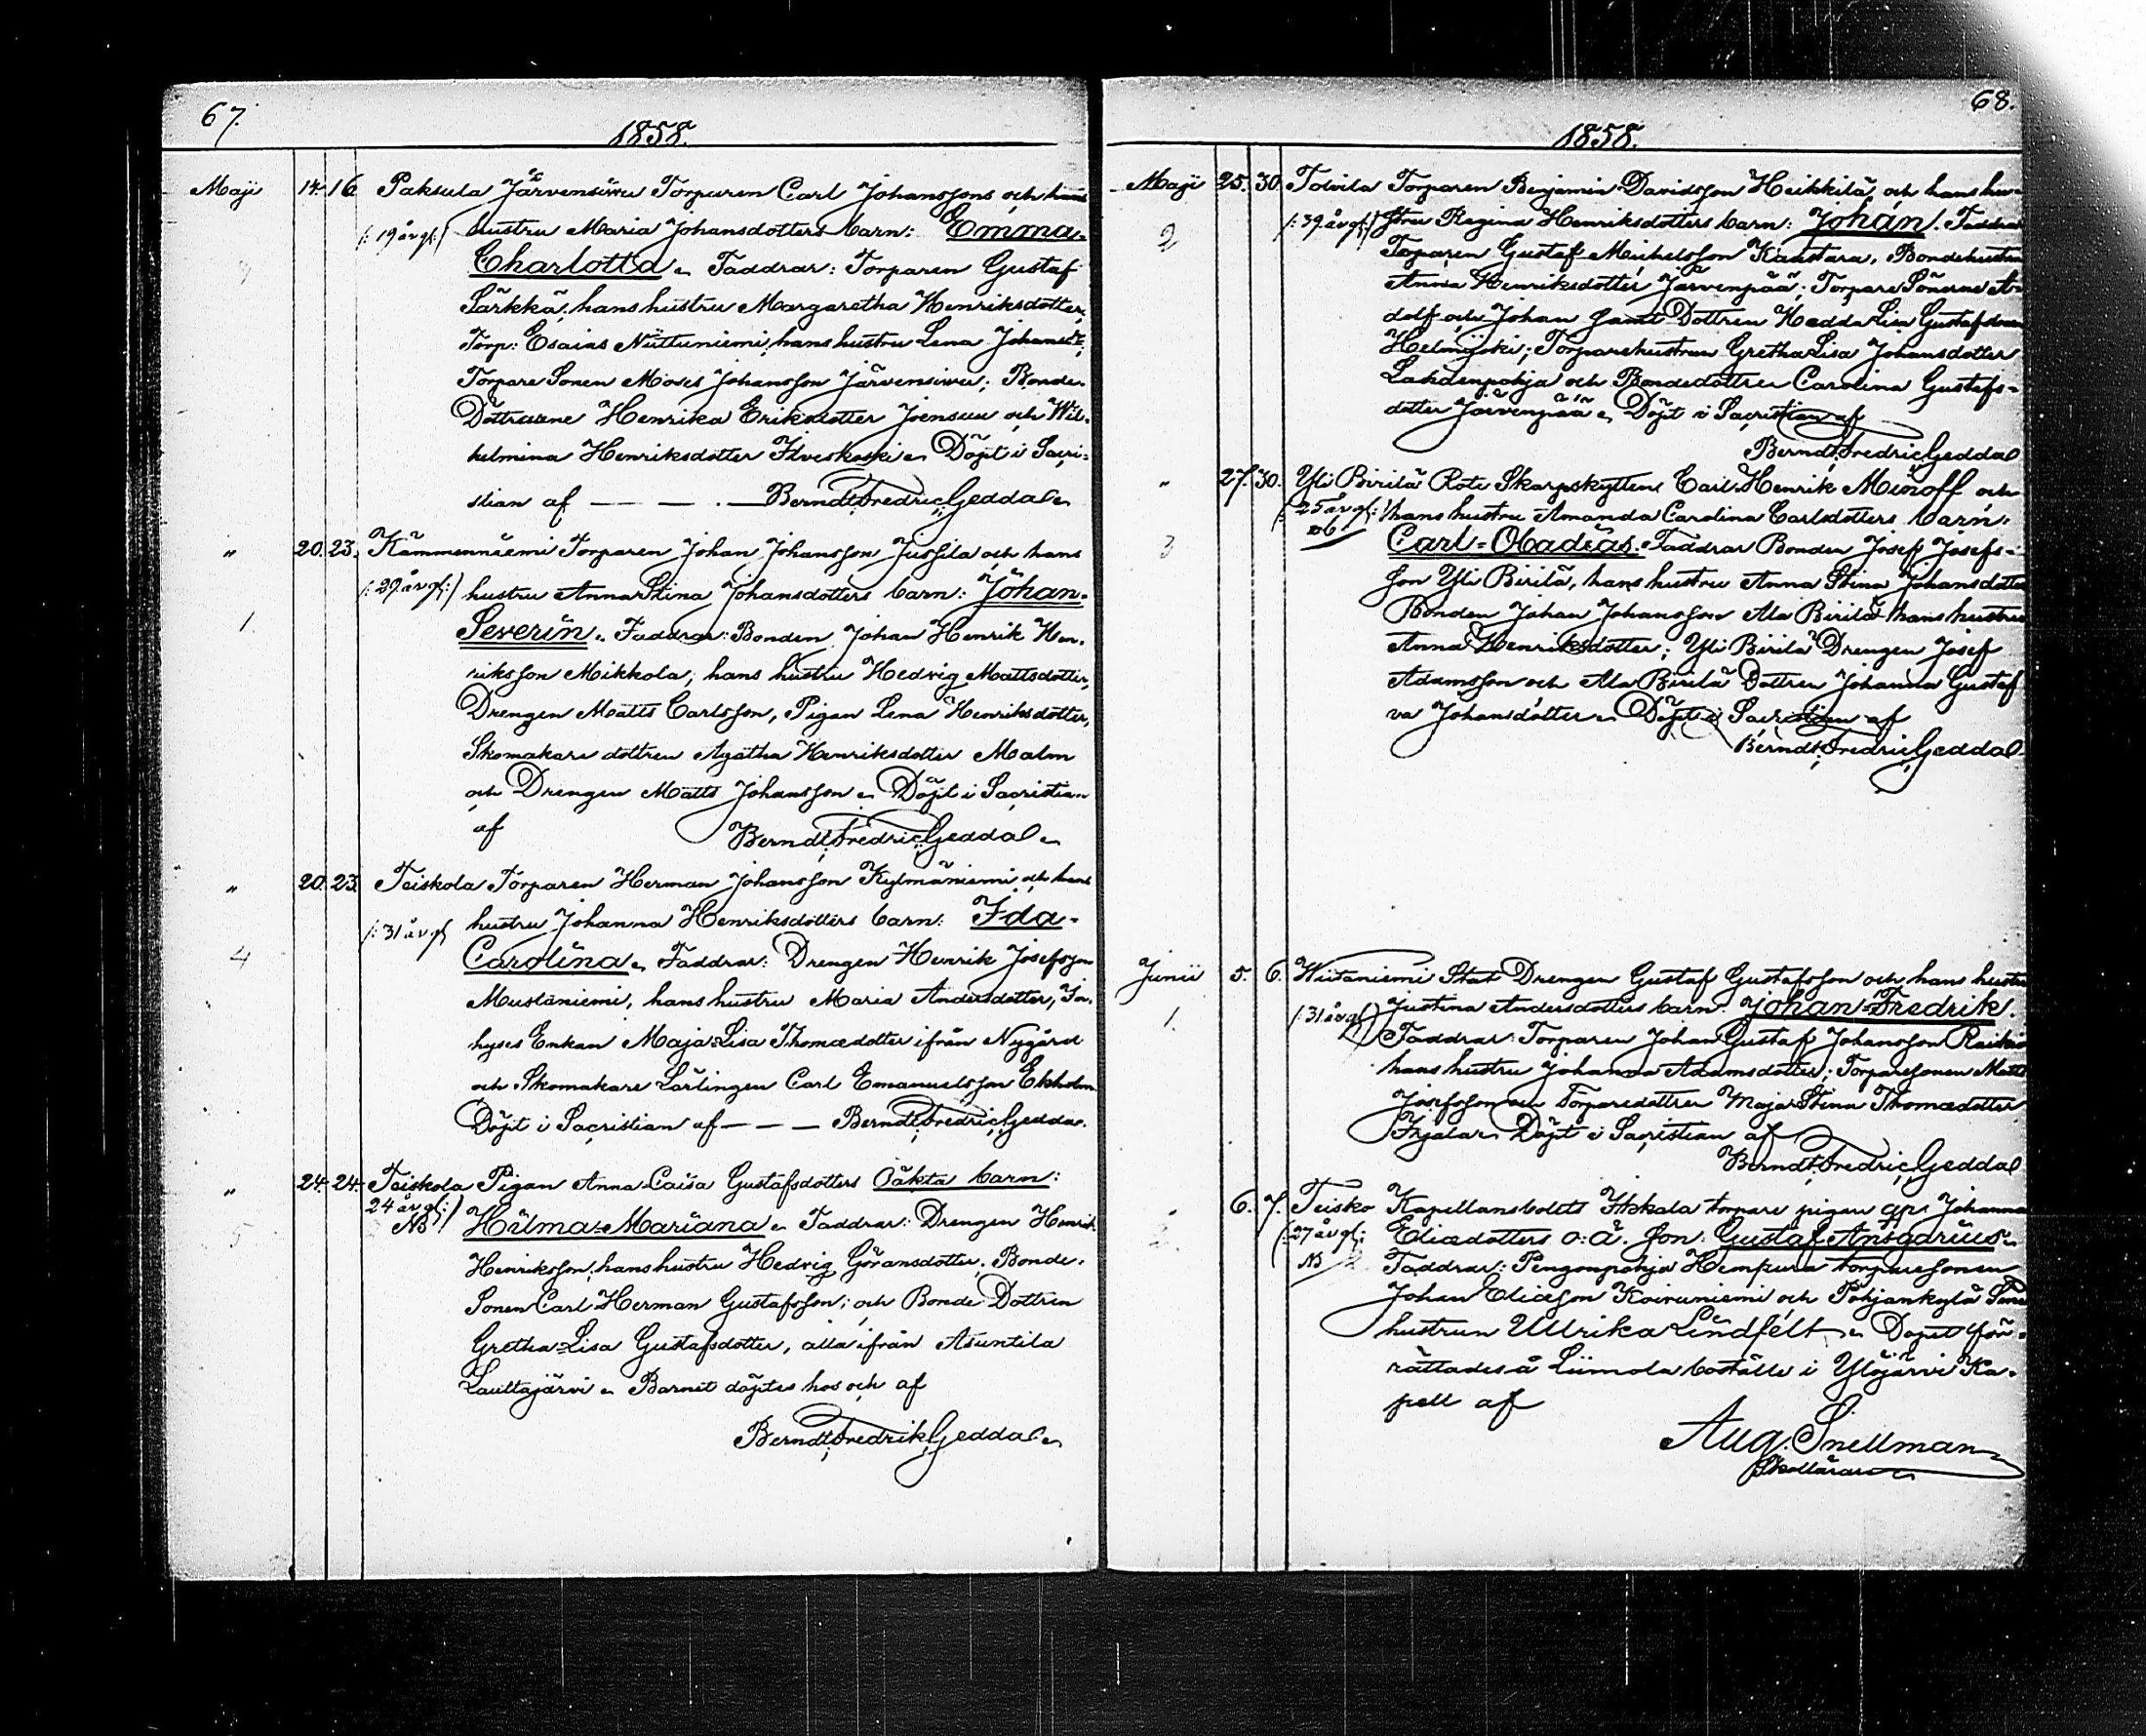 67.
1858.
Maji 14. 16. Paksula Järvensiwu Torparen Carl Johanssons och hans
/: 19 år gl :/ hustru Maria Johansdotters barn: Emma-
Charlotta. Faddrar: Torparen Gustaf
Särkkä, hans hustru Margaretha Henriksdotter,
Torp: Esaias Niittuniemi, hans hustru Lena Johansdr,
Torpare Sonen Moses Johansson Järvensiwu; Bonde-
Döttrarne Henrika Eriksdotter Joensuu och Wil-
helmina Henriksdotter Ilveskoski. Döpt i Sacri-
stian af — — . — Berndt Fredric Geddal.
" 20. 23. Kämmenniemi Torparen Johan Johansson Jussila och hans
/: 29 år gl :/ hustru Anna Stina Johansdotters barn: Johan-
1. Severin. Faddrar: Bonden Johan Henrik Hen-
riksson Mikkola, hans hustru Hedvig Mattsdotter,
Drengen Matts Carlsson, Pigan Lena Henriksdotter,
Skomakare dottren Agatha Henriksdotter Malm
och Drengen Matts Johansson. Döpt i Sacristian
af Berndt Fredric Geddal.
" 20. 23. Teiskola Torparen Herman Johansson Kylmäniemi och hans
/: 31 år gl hustru Johanna Henriksdotters barn: Ida-
4 Carolina. Faddrar: Drengen Henrik Josefsson
Mustaniemi, hans hustru Maria Andersdotter, In-
hyses Enkan Maja Lisa Thomædotter ifrån Nygård
och Skomakare Lärlingen Carl Emanuelsson Ekholm
Döpt i Sacristian af — — — Berndt Fredric Geddal.
" 24. 24. Teiskola Pigan Anna Caisa Gustafsdotters Oäkta barn:
24 år gl :/
5 NB Hilma-Mariana. Faddrar: Drengen Henrik
Henriksson, hans hustru Hedvig Göransdotter, Bonde-
Sonen Carl Herman Gustafsson; och Bonde Dottren
Gretha-Lisa Gustafsdotter, alla ifrån Asuntila
Lauttajärvi. Barnet döptes hos och af
Berndt Fredrik Geddal.
68.
1858.
Maji 25. 30. Toivila Torparen Benjamin Davidsson Heikkilä och hans hu-
2 /: 39 år gl :/ stru Regina Henriksdotters barn: Johan. Faddrar
Torparen Gustaf Michelsson Kantara, Bondehustrun
Anna Henriksdotter Järvenpää; Torpare Sönerne
dolf och Johan samt Dottren Hedda Lisa Gustafsdotter
Helinjoki; Torparehustrun Gretha Lisa Johansdotter
Lahdenpohja och Bondedottren Carolina Gustafs-
dotter Järvenpää. Döpt i Sacristian af
Berndt Fredric Geddal
" 27. 30. Yli Pirilä Rote Skarpskytten Carl Henrik Minoff och
/: 25 år gl :/ hans hustru Amanda Carolina Carlsdotters barn:
3 Carl-Obadias. Faddrar Bonden Josef Josefs-
son Yli Pirilä, hans hustru Anna Stina Johansdotter
Bonden Johan Johansson Ala Pirilä hans hustru
Anna Henriksdotter; Yli Pirilä Drengen Josef
Adamsson och Ala Pirilä Dottren Johanna Gustaf
va Johansdotter. Döpt i Sacristian af
Berndt Fredric Geddal
Junii 5. 6. Wiitaniemi Stat Drengen Gustaf Gustafsson och hans hustru
1. /: 31 år gl :/ Justina Andersdotters barn: Johan-Fredrik.
Faddrar: Torparen Johan Gustaf Johansson
hans hustru Johanna Adamsdotter; Torparesonen Matts
Josefsson och Torparedottren Maja Stina Thomædotter
Döpt i Sacristian af
Berndt Fredric Geddal
" 6. 7. Teisko Kapellansbolets Iskala torpare pigan Johanna
/: 27 år gl: Eliædotters o: ä. son: Gustaf Ansgarius.
NB Faddrar: Pengonpohja Hempura torparesonen
Johan Eliæson Koivuniemi och Pohjankylä
hustrun Ullrika Lindfelt. Dopet för-
rättades å Liimola boställe i Ylöjärvi Ka-
pell af
Aug. Snellman
Skollärare